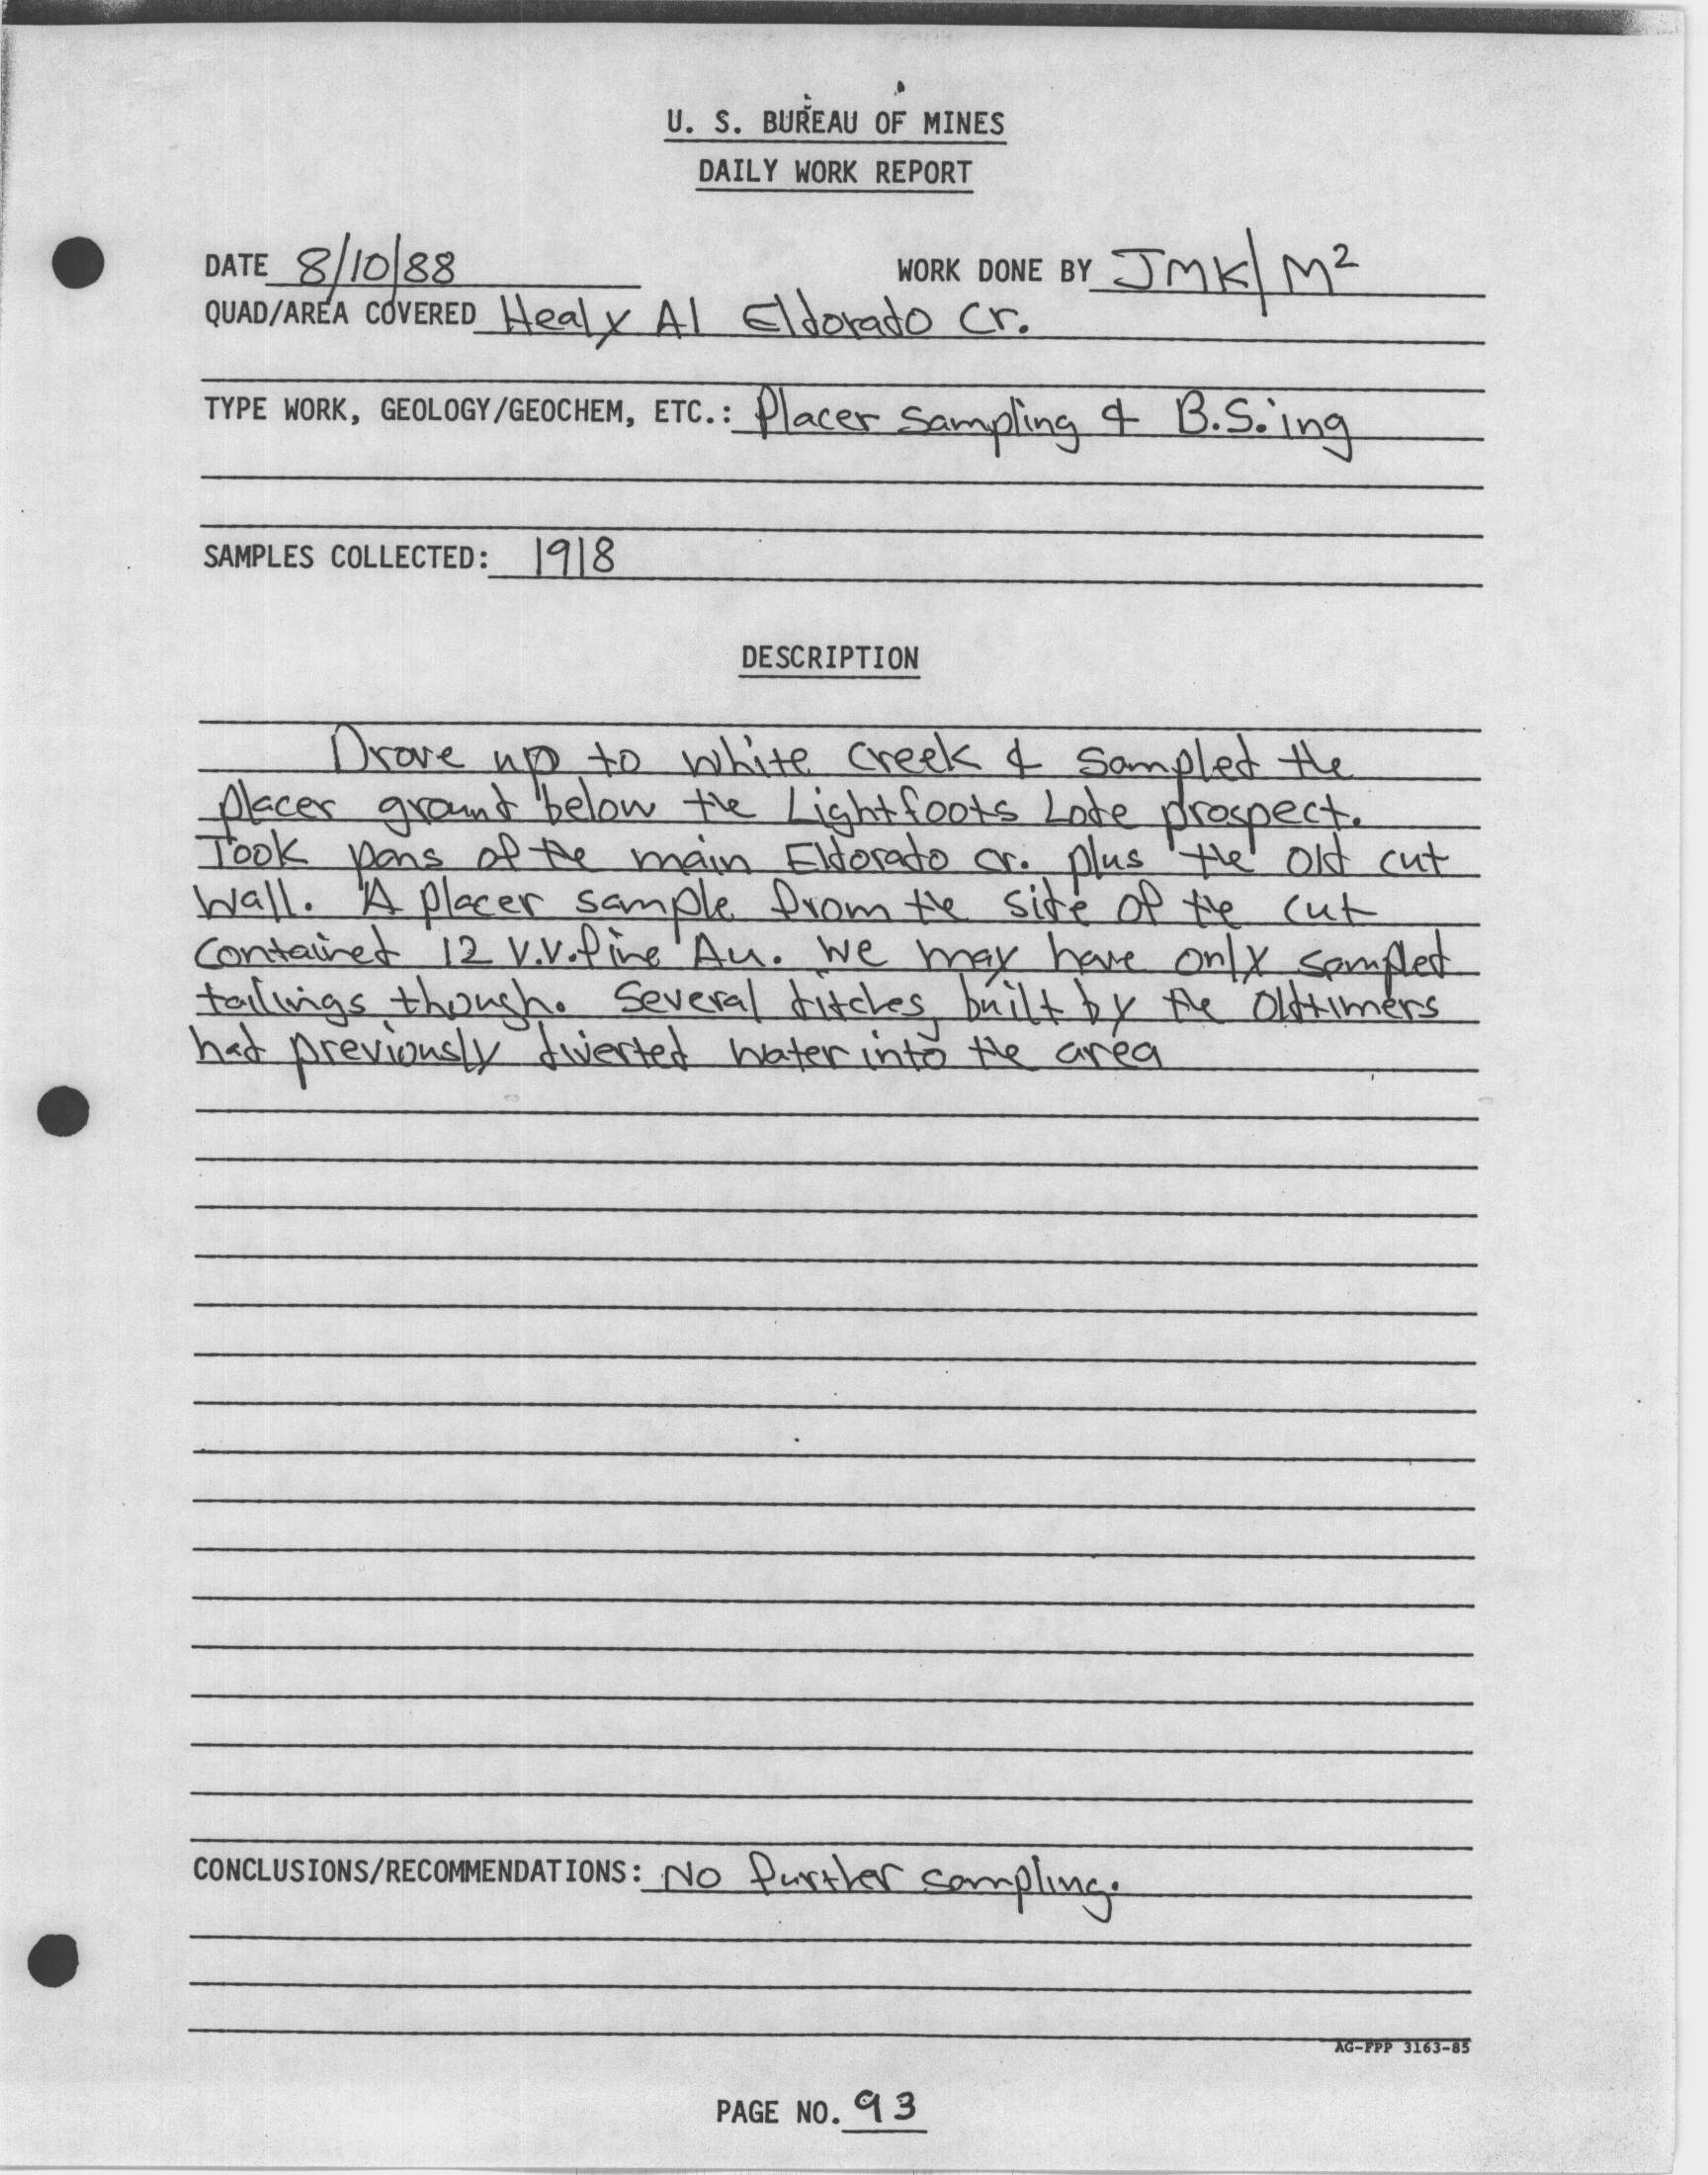 U. S. BUREAU OF MINES
DAILY WORK REPORT
DATE 8/10/88 WORK DONE BY JMK/M²
QUAD/AREA COVERED Healy A1 Eldorado Cr.
TYPE WORK, GEOLOGY/GEOCHEM, ETC.: Placer Sampling & B.S.'ing
SAMPLES COLLECTED: 1918
DESCRIPTION
Drove up to White Creek & Sampled the
placer ground below the Lightfoots Lode prospect.
Took pans of the main Eldorado cr. plus the old cut
wall. A placer sample from the side of the cut
contained 12 V.V.fine Au. We may have only sampled
tailings though. Several ditches, built by the Oldtimers
had previously diverted water into the area
CONCLUSIONS/RECOMMENDATIONS: No further sampling.
AG-FPP 3163-85
PAGE NO. 93